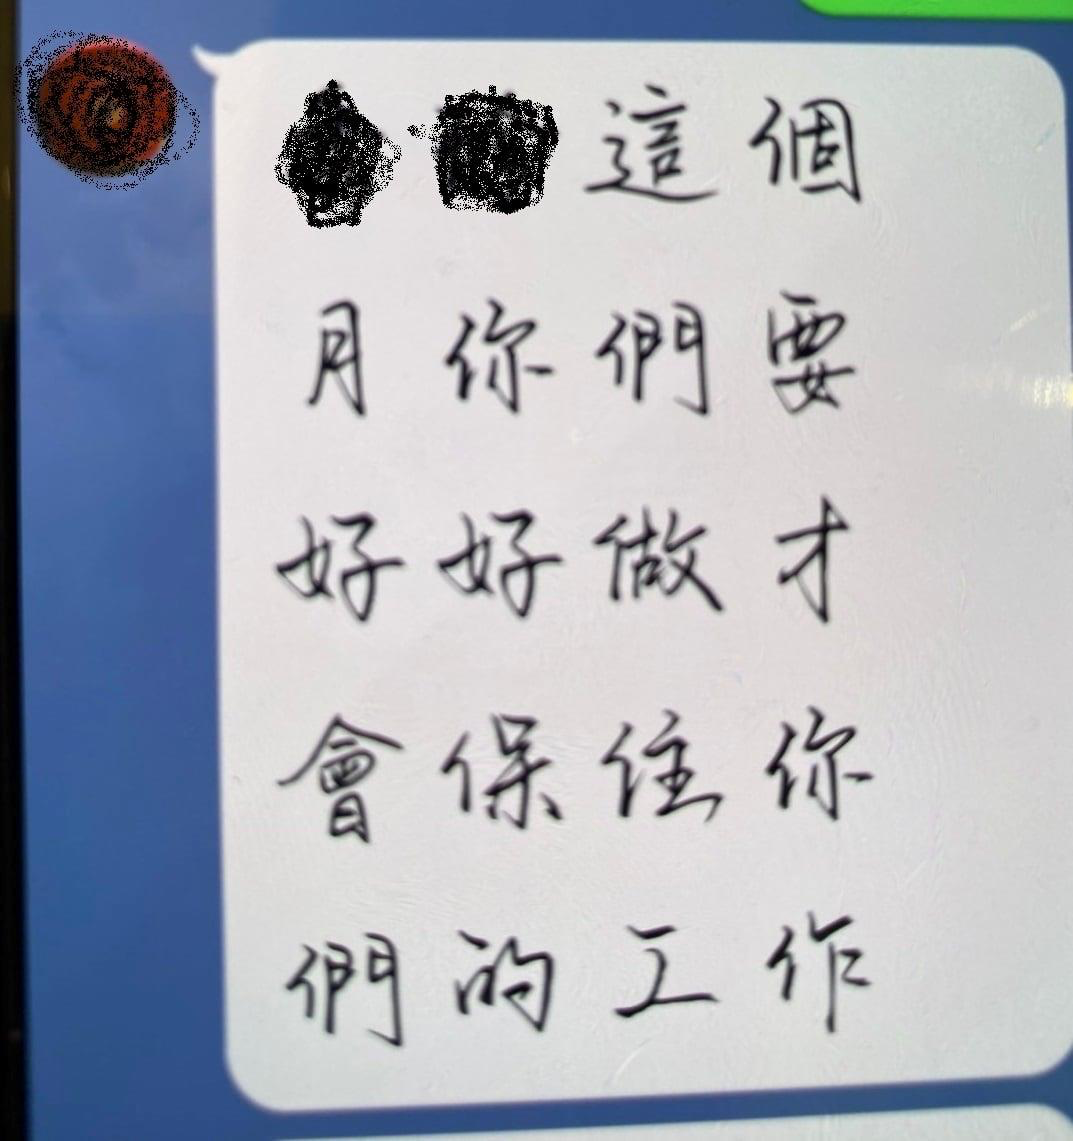 這個
月你們要
好好做才
會保住你
們的工作